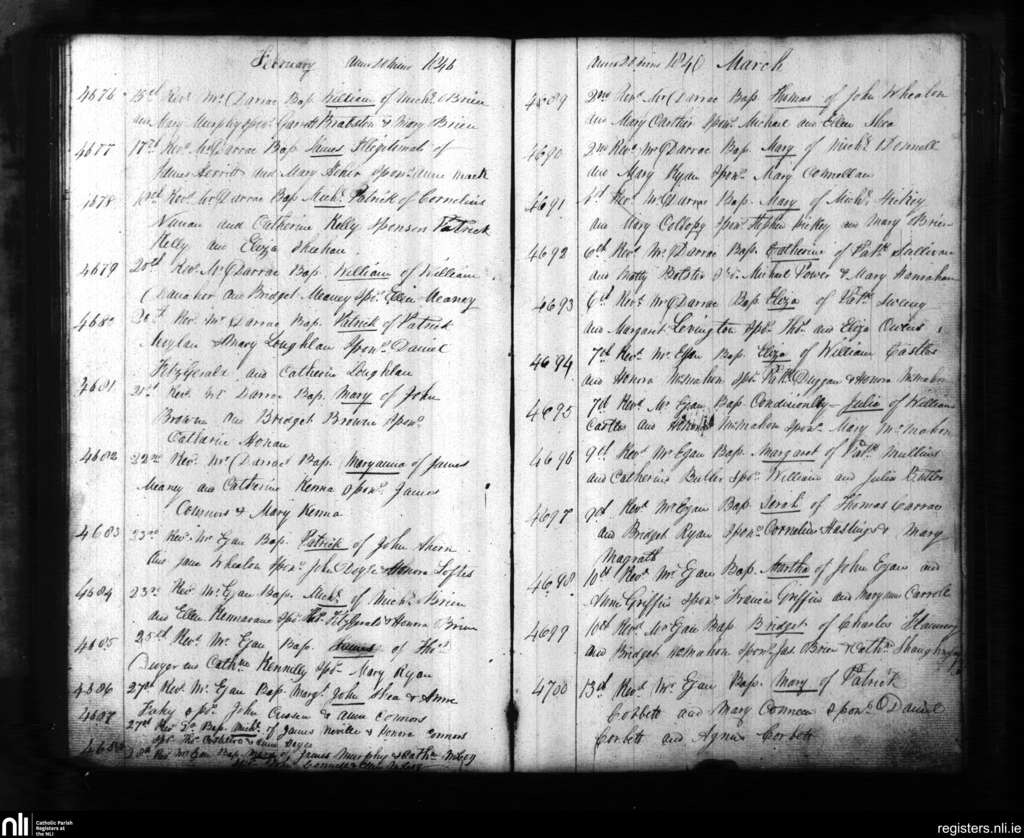 February Anno Domini 1846
4676 15th Revd Mr McDarrac Bap. William of Michl. OBrien
and Mary Murphy Spons. Garrett & Mary OBrien
4677 17th Revd McDarrac Bap. James Illegitimate of
James and Mary Spons. Anne Mack
4678 Revd McDarrac Bap. Michl. Patrick of Cornelius
and Catherine Kelly Sponsors Patrick
Kelly and Eliza Sheehan
4679 20th Revd McDarrac Bap. William of William
Danaher and Bridget Meaney Spr. Ellen Meaney
4680 20th Revd McDarrac Bap. Patrick of Patrick
& Mary Loughlan Spons. Daniel
Fitzgerald and Catherine Loughlan
4681 21st Revd Mc Darrac Bap. Mary of John
Browne and Bridget Browne Spons.
Catharine
4682 22nd Revd McDarrac Bap. Maryanna of James
Meaney and Catherine Kenna Spons. James
Connors & Mary Kenna
4683 23rd Revd Mr Egan Bap. Patrick of John Ahern
and Jane Whealon Spons. John Doyle & Honora Loftes
4684 23rd Revd Mr Egan Bap. Michl. of Michl. OBrien
and Ellen Spr. Fitzgerald & Honora OBrien
4685 25th Revd Mr. Egan Bap. James of Thos.
Dwyer and Cathne Kennelly Spr. Mary Ryan
4686 27th Revd Mr. Egan Bap. John Shea & Anne
Spr. John & Anne Connors
4687
27th Revd Do Bap. Michl. of James Neville & Honora Connors
Spr. Thos. & Anne Hayes
4688
Revd Mr Egan Bap. Mary of James Murphy & Cathn McCoy
Anno Domini 1846 March
4689 2nd Revd McDarrac Bap. Thomas of John Whealon
and Mary Carthy Spons. Michael and Ellen Shea
4690 2nd Revd McDarrac Bap. Mary of Michl. ODonnell
and Mary Ryan Spons. Mary Connellan
4691 Revd McDarrac Bap. Mary of Michl. Hickey
and Mary Collopy Spons. Stephen Hickey and Mary OBrien
4692 6th Revd McDarrac Bap. Catherine of Patk. Sullivan
and Spr. Michael Power & Mary Hanrahan
4693 6th Revd McDarrac Bap. Eliza of Patk. Sweeny
and Margaret Levington Spr. Thos. and Eliza Owens
4694 7th Revd Mr. Egan Bap. Eliza of William Castles
and Honora McMahon Spr. Patk. Duggan & Honora McMahon
4695 7th Revd Mr. Egan Bap. Conditionally Julia of William
Castles and Honora McMahon Spons. Mary McMahon
4696 9th Revd Mr Egan Bap. Margaret of Patk. Mullins
and Catherine Butler Spr. William and Julia Butler
4697 9th Revd Mr Egan Bap. Sarah of Thomas Carrol
and Bridget Ryan Spons. Cornelius Hastings & Mary
Magrath
4698 10th Revd Mr Egan Bap. Martha of John Egan and
Anne Griffin Spons. Francis Griffin and Maryanne Carroll
4699 10th Revd Mr Egan Bap. Bridget of Charles Flannery
and Bridget McMahon Spons. Jas. OBrien & Cath. Shaughnessy
4700 13th Revd Mr. Egan Bap. Mary of Patrick
Corbett and Mary Spons. Daniel
Corbett and Agnes Corbett
nli Catholic Parish
Registers at
the NLI
registers.nli.ie